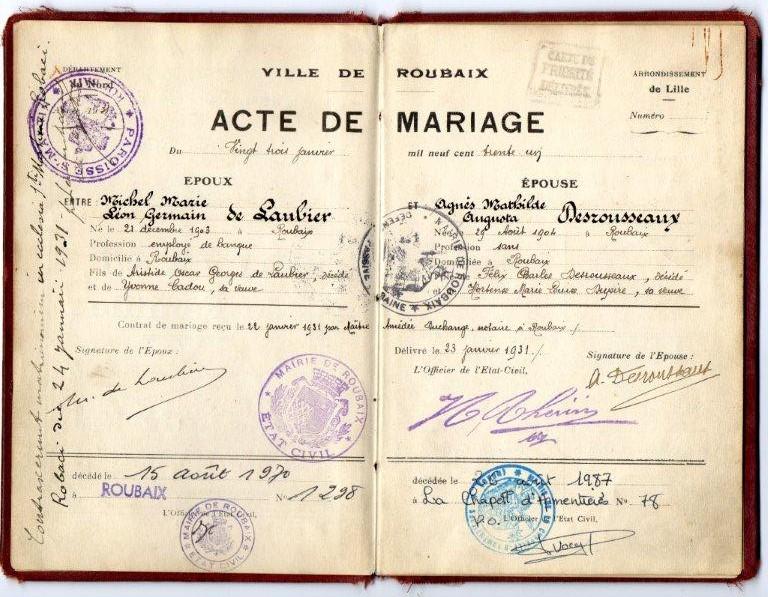 DÉPARTEMENT
du Nord
VILLE DE ROUBAIX
ARRONDISSEMENT
de Lille
Numéro
CARTE DE
PRIORITÉ
DÉLIVRÉE
ACTE DE MARIAGE
Du Vingt trois janvier mil neuf cent trente un
EPOUX
ENTRE Michel Marie
Léon Germain de Laubier
Né le 21 décembre 1903 à Roubaix
Profession employé de banque
Domicilié à Roubaix
Fils de Aristide Oscar Georges de Laubier, décédé
et de Yvonne Cadou, sa veuve
ÉPOUSE
ET Agnès Mathilde
Augusta Desrousseaux
Née le 29 Août 1904 à Roubaix
Profession sans
Domiciliée à Roubaix
Félix Charles Desrousseaux, décédé
Hortense Marie sa veuve
Contrat de mariage reçu le 22 janvier 1931 par Maître Amédée Duchange, notaire à Roubaix
Signature de l'Epoux :
M. de Laubier
Délivré le 23 janvier 1931
L'Officier de l'Etat-Civil,
Signature de l'Epouse :
A. Desrousseaux
MAIRIE DE ROUBAIX
ÉTAT CIVIL
décédé le 15 août 1970
à ROUBAIX N° 1298
L'Officier de l'Etat Civil,
MAIRIE DE ROUBAIX
ÉTAT CIVIL
décédée le août 1987
à La Chapelle d'Armentières N° 78
P.O. L'Officier de l'Etat Civil,
PAROISSE ST MARTIN
ROUBAIX
MAIRIE DE ROUBAIX
Contraxerunt matrimonium in ecclesia Sti Martini Robaci.
Robaci die 24 januarii 1931